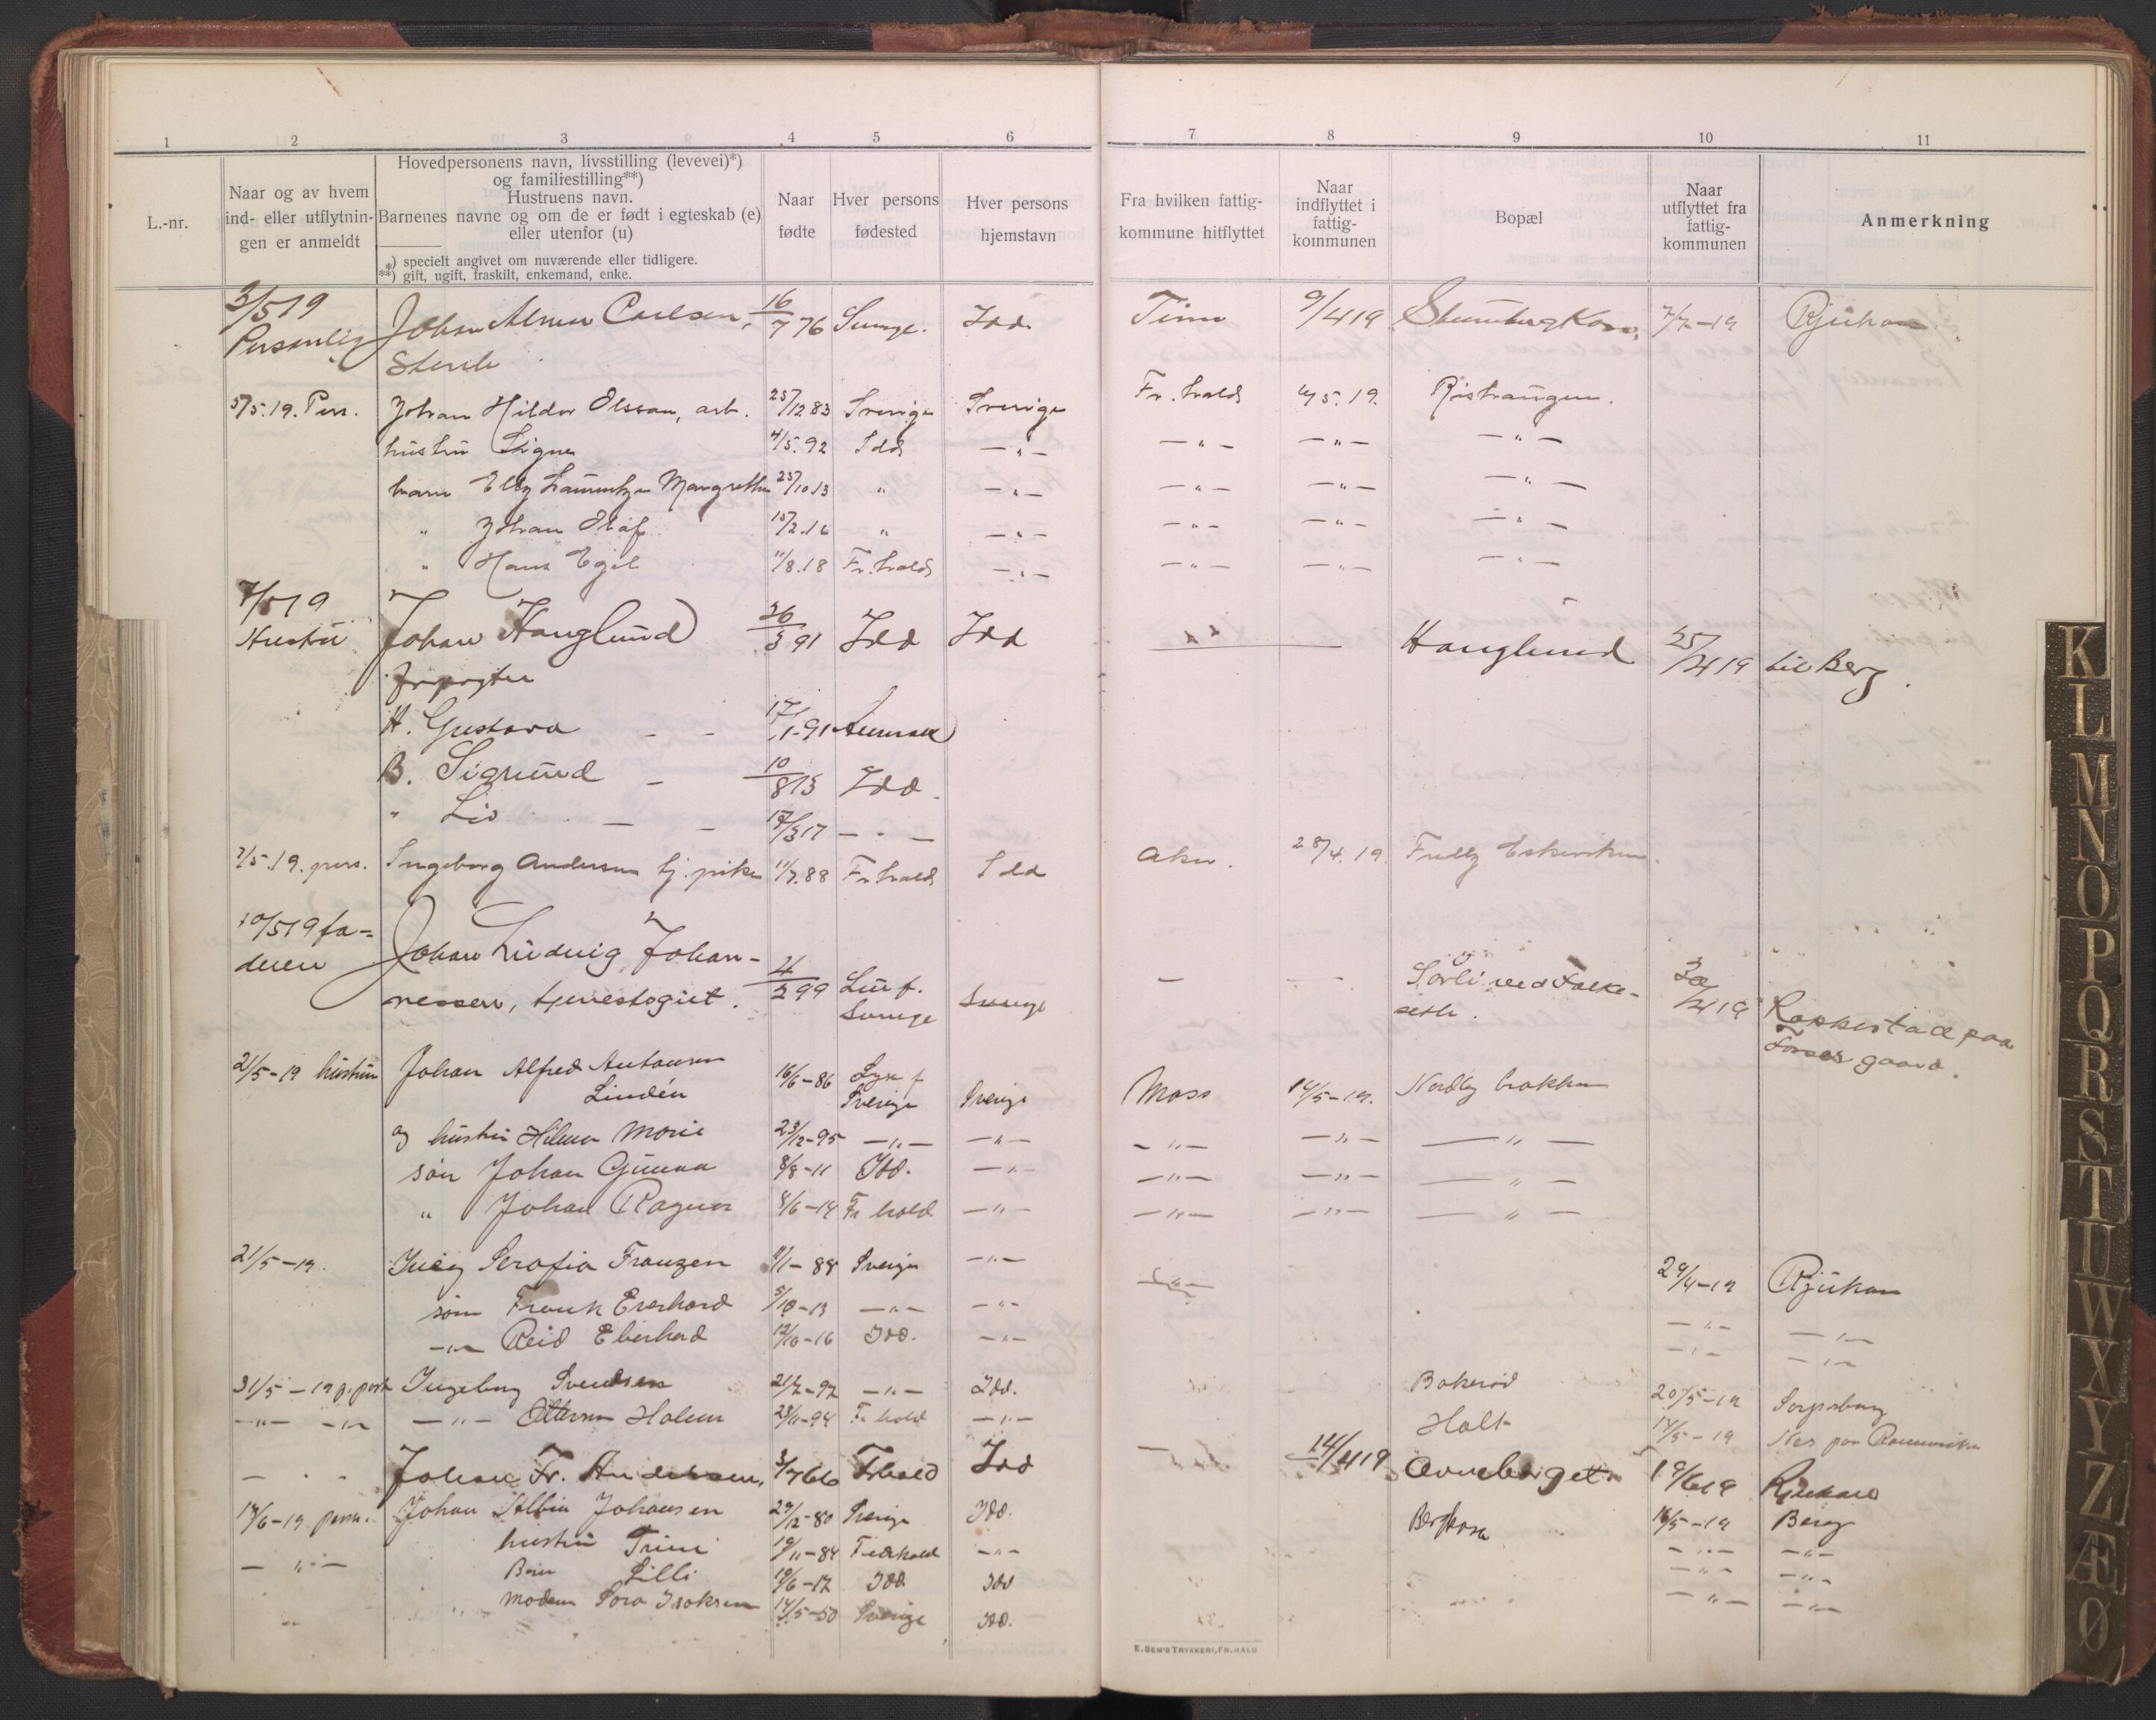 1 2 3 4 5 6 7 8 9 10 11
L.-nr.
Naar og av hvem
ind- eller utflytnin-
gen er anmeldt
Hovedpersonens navn, livsstilling (levevei)*)
og familiestilling**)
Hustruens navn.
Barnenes navne og om de er født i egteskab (e)
eller utenfor (u)
*) specielt angivet om nuværende eller tidligere.
**) gift, ugift, fraskilt, enkemand, enke.
Naar
fødte
Hver persons
fødested
Hver persons
hjemstavn
Fra hvilken fattig-
kommune hitflyttet
Naar
indflyttet i
fattig-
kommunen
Bopæl
Naar
utflyttet fra
fattig-
kommunen
Anmerkning
3/5 19 Johan Carlsen, 16/7 76 Idd Tinn 9/4 19 7/7-19 Rjukan
Personlig
5/5.19. Pers. Johan Hildor Olsson, arb. 25/12 83 Sverige Sverige Fr.hald 5.19. Ristrangen.
hustru Signe 4/5.92 Idd — " — — " — — " — — " —
barn Elly Margrethe 25/10 13 " — " — — " — — " — — " —
" Johan Olaf 15/2.16 " — " — — " — — " — — " —
" Hans Egil 11/8.18 Fr.hald — " — — " — — " — — " —
7/5 19
Hustru Johan Hauglund 26/3 91 Idd Idd Hauglund 25/4 19 til Berg.
Forpagter
H. Gustava 17/1-91 Aremark
B. Sigrund 10/8 13 Idd
" Liv 17/3 17 — " —
7/5.19. pers. Ingeborg Andersen tj. pike 11/7.88 Fr.hald Idd Aker. 28/4.19.
10/5 19 fa-
deren Johan Ludvig Johan-
nessen, tjenestegut. 4/2 99 Lur s. Sverige Sverige — — Sørli ved Falke- 4 19 Rakkestad paa
gaard.
21/5-19 hustru Johan Alfred Antonsen
Lindén 16/6-86 Sverige Sverige Moss 14/5-19. Nordby brakken
og hustru Hilma Marie 23/12-95 — " — — " — — " — — " — — " —
søn Johan Gunnar 8/8-11 Idd. — " — — " — — " — — " —
" Johan Ragnar 8/6-14 Fr hald — " — — " — — " — — " —
21/5-19. Serafia Franzen 11/1-88 Sverige — " — — " — 29/4-19 Rjukan
søn Frank Everhard 5/10-13 — " — — " — — " — — " —
— " — Reid Eberhard 12/10-16 Idd. — " — — " — — " —
31/5-19 p. post Ingeborg Svendsen 21/7-97 — " — Idd. Bakerød 20/5-19 Sarpsborg
— " — — " — — " — Holm 23/11-94 Fr hald — " — Holt 14/5-19 Nes paa Romerike
— " — Johan Fr. Andersen, 3/7 66 Frhald Idd — 14/4 19 19/6 19 Rjukan
14/6-19 pers. Johan Albin Johansen 29/12-80 Sverige Idd. 16/5-19 Berg
— " — hustru Trine 19/11-84 Fredhald — " — — " — — " —
Barn Lilli 19/6-17 Idd Idd — " — — " —
Modern Sara Isaksen 14/5-50 Sverige Idd. — " — — " —
E. SEM'S TRYKKERI, FR.HALD
K
L
M
N
O
P
Q
R
S
T
U
W
X
Y
Z
Æ
Ø